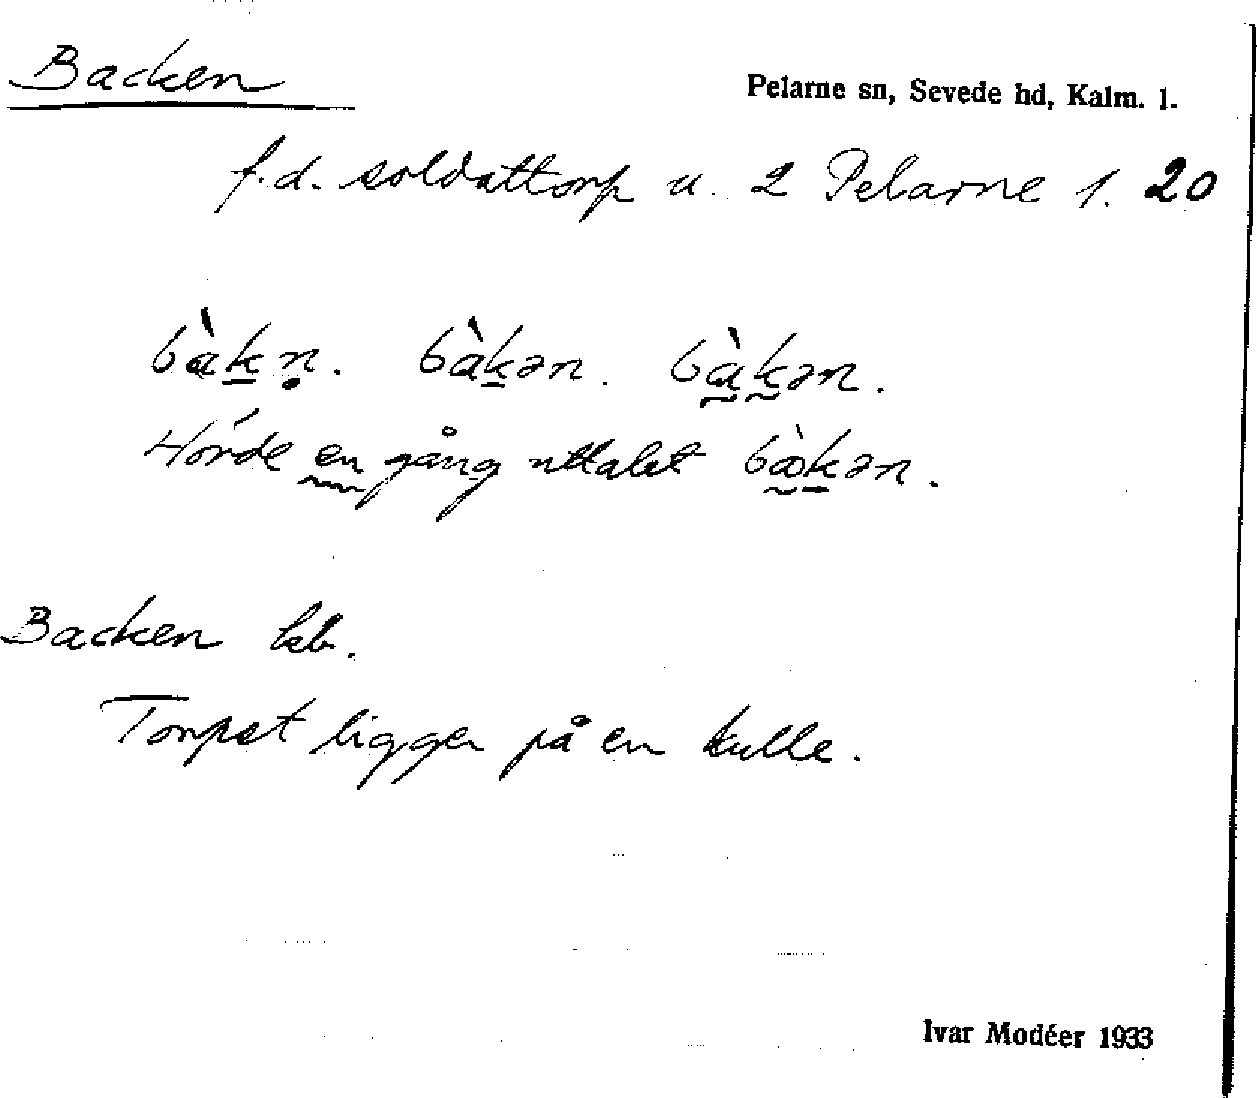 Backen
Pelarne sn, Sevede hd, Kalm. l.
f.d. soldattorp u. 2 Pelarne 1. 20
bàk̠ṇ. bàk̠ən. bà̰k̰ən.
Hörde en gång uttalet bæ̰̀k̠ən.
Backen kb.
Torpet ligger på en kulle.
Ivar Modéer 1933